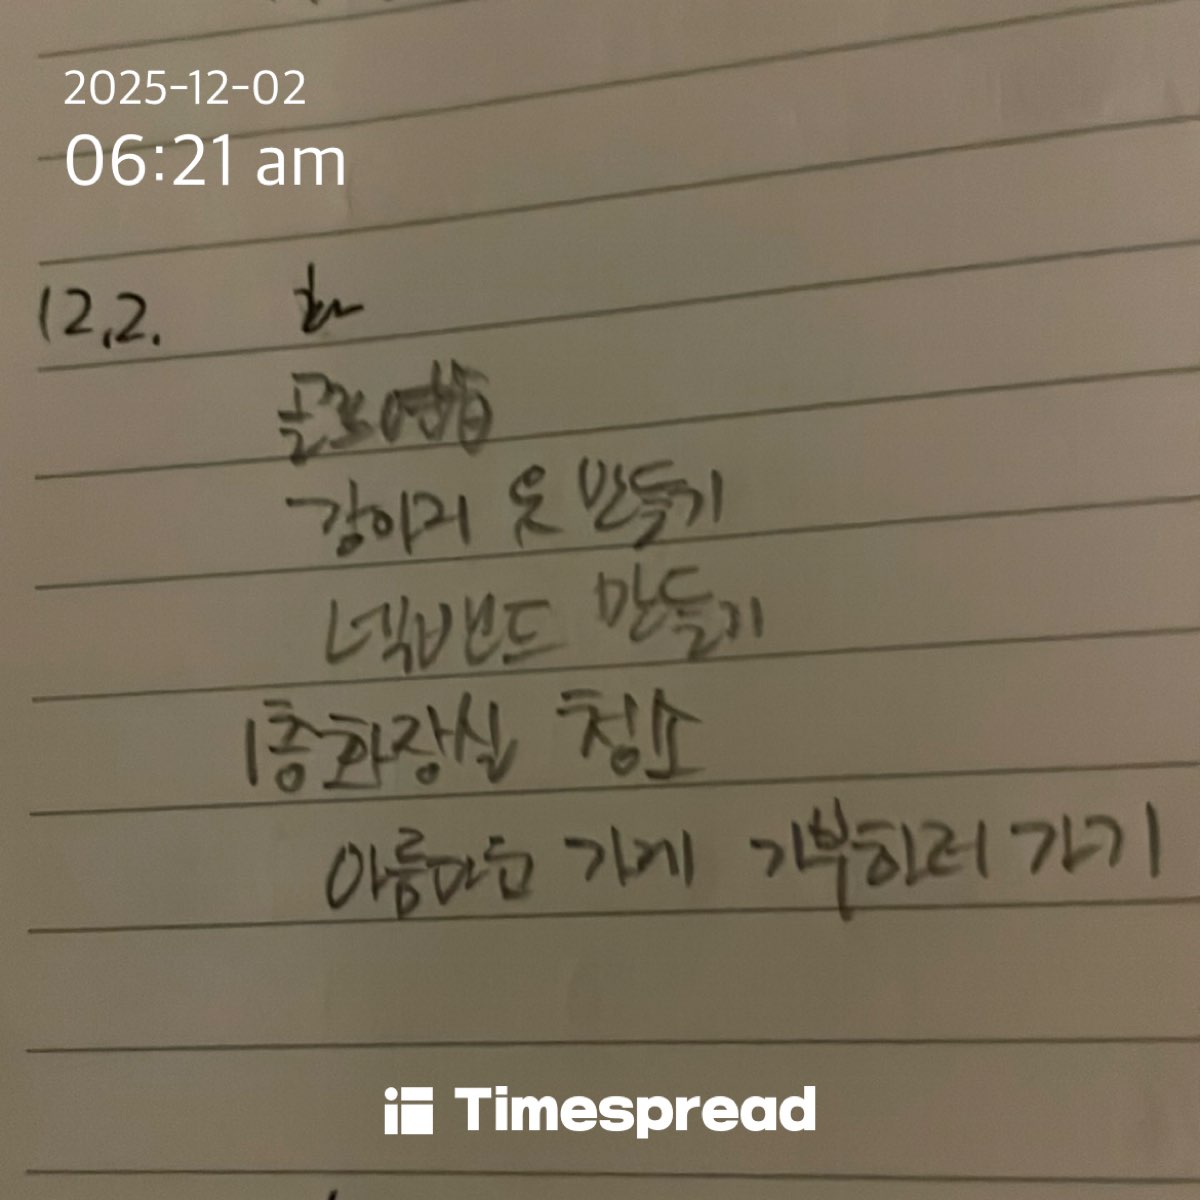 2025-12-02
06:21 am
12.2. 화
골프연습
강아지 옷 만들기
넥밴드 만들기
1층화장실 청소
아름다운 가게 기부하러 가기
Timespread